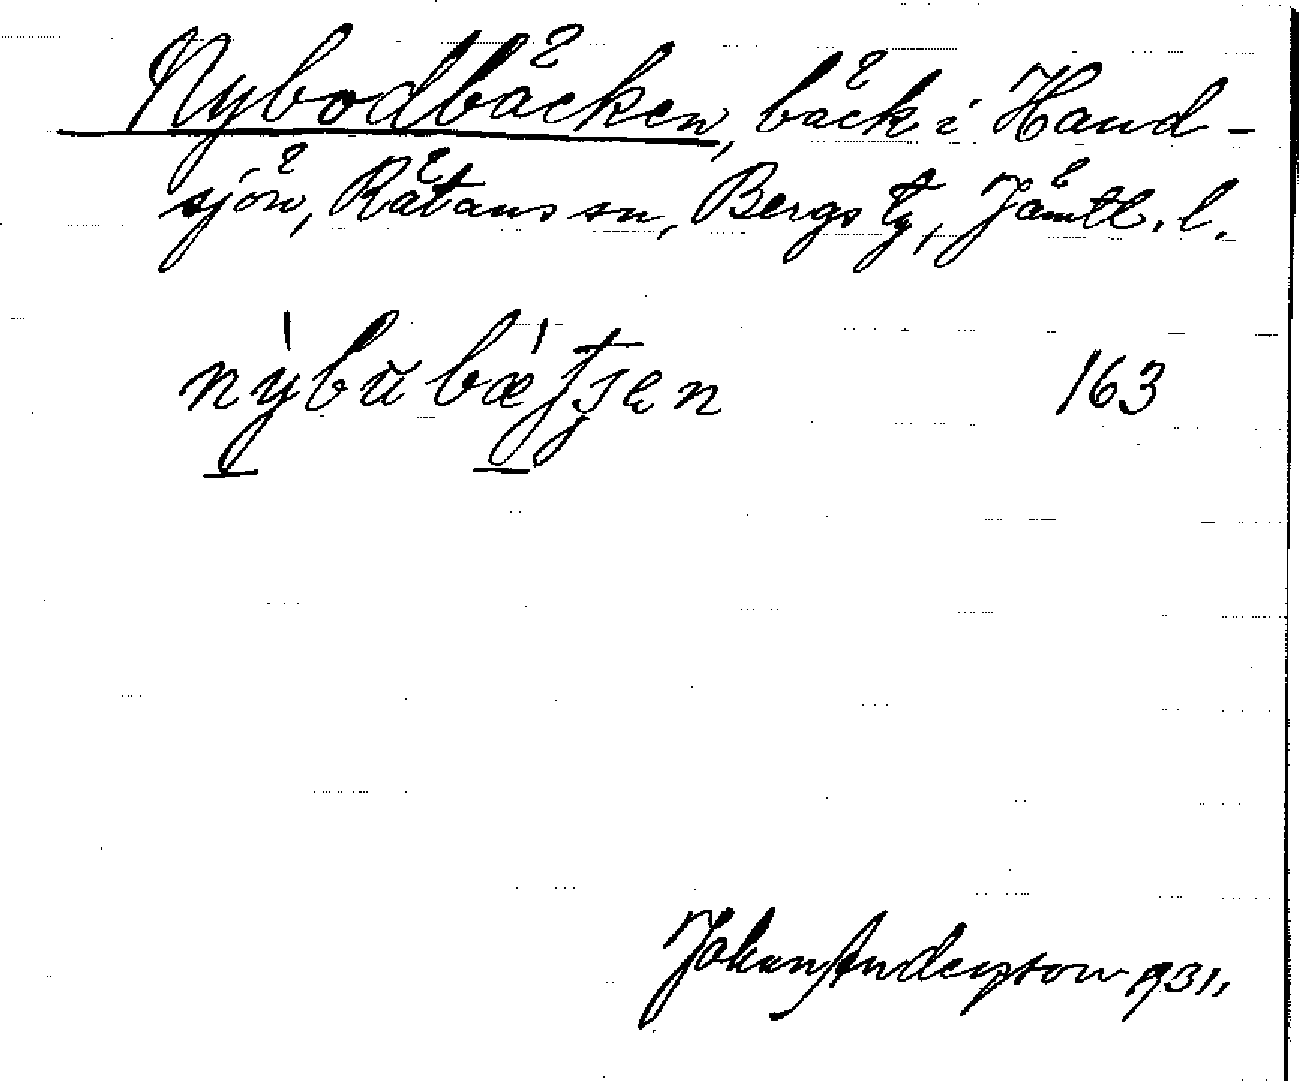 Nybodbäcken, bäck i Hand-
sjön, Rätans sn, Bergs tg, Jämtl. l.
163
Johan Anderson 1931.